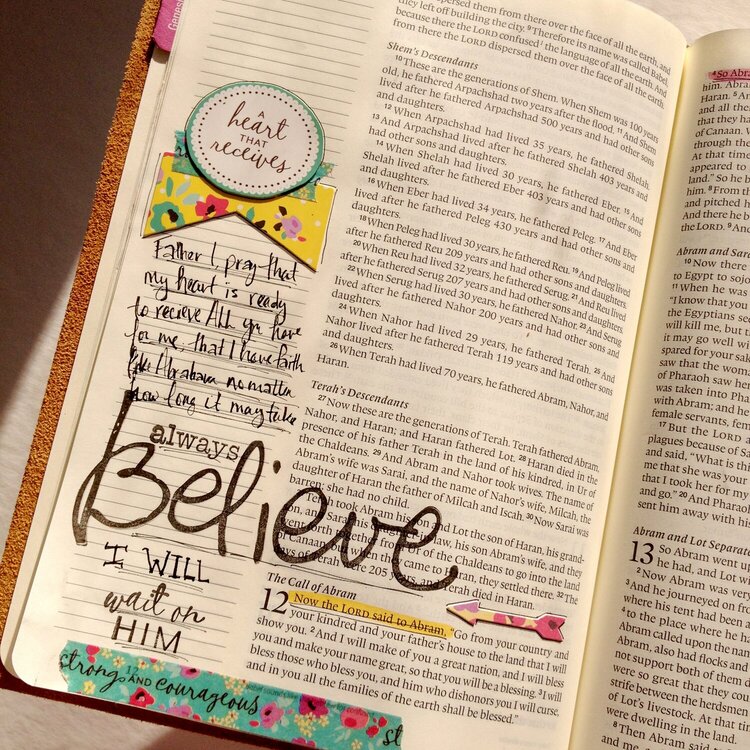 Genes
A
heart
THAT
receives
Father I pray that
my heart is ready
to recieve All you have
for me, that I have faith
like Abraham no matter
how long it may take
always
Believe
I WILL
wait on
HIM
strong AND courageous
st
persed them from there over the face of all the earth, and
they left off building the city. 9 Therefore its name was called Babel,
because there the LORD confused the language of all the earth. And
from there the LORD dispersed them over the face of all the earth.
Shem's Descendants
10 These are the generations of Shem. When Shem was 100 years
old, he fathered Arpachshad two years after the flood. 11 And Shem
lived after he fathered Arpachshad 500 years and had other sons
and daughters.
12 When Arpachshad had lived 35 years, he fathered Shelah.
13 And Arpachshad lived after he fathered Shelah 403 years and
had other sons and daughters.
14 When Shelah had lived 30 years, he fathered Eber. 15 And
Shelah lived after he fathered Eber 403 years and had other sons
and daughters.
16 When Eber had lived 34 years, he fathered Peleg. 17 And Eber
lived after he fathered Peleg 430 years and had other sons and
daughters.
18 When Peleg had lived 30 years, he fathered Reu. 19 And Peleg lived
after he fathered Reu 209 years and had other sons and daughters.
20 When Reu had lived 32 years, he fathered Serug. 21 And Reu lived
after he fathered Serug 207 years and had other sons and daughters.
22 When Serug had lived 30 years, he fathered Nahor. 23 And Serug
lived after he fathered Nahor 200 years and had other sons and
daughters.
24 When Nahor had lived 29 years, he fathered Terah. 25 And
Nahor lived after he fathered Terah 119 years and had other sons
and daughters.
26 When Terah had lived 70 years, he fathered Abram, Nahor, and
Haran.
Terah's Descendants
27 Now these are the generations of Terah. Terah fathered Abram,
Nahor, and Haran; and Haran fathered Lot. 28 Haran died in the
presence of his father Terah in the land of his kindred, in Ur of
the Chaldeans. 29 And Abram and Nahor took wives. The name of
Abram's wife was Sarai, and the name of Nahor's wife, Milcah, the
daughter of Haran the father of Milcah and Iscah. 30 Now Sarai was
barren; she had no child.
Terah took Abram his son and Lot the son of Haran, his grand-
son, and Sarai law, his son Abram's wife, and they
forth of the Chaldeans to go into the land
of Canaan, when they came to Haran, they settled there. 32 The
days of Terah were 205 years, and Terah died in Haran.
The Call of Abram
12 Now the LORD said to Abram, "Go from your country and
your kindred and your father's house to the land that I will
show you. 2 And I will make of you a great nation, and I will bless
you and make your name great, so that you will be a blessing. 3 I will
bless those who bless you, and him who dishonors you I will curse,
and in you all the families of the earth shall be blessed."
4 So Abram
him. Abra
Haran. 5 An
and all the
that they h
of Canaan. W
through the
At that time
appeared to
land." So he b
him. 8 From th
and pitched h
And there he b
the LORD. 9 An
Abram and Sara
10 Now there
to Egypt to sojo
11 When he was
"I know that you
the Egyptians see
will kill me, but t
it may go well wi
spared for your sak
saw that the woma
of Pharaoh saw he
was taken into Phar
with Abram; and ha
female servants, fem
17 But the LORD
plagues because of Sa
and said, "What is th
me that she was your
that I took her for my
and go." 20 And Pharao
sent him away with hi
Abram and Lot Separat
13 So Abram went up
he had, and Lot w
2 Now Abram was very
3 And he journeyed on fr
where his tent had been a
4 to the place where he ha
Abram called upon the na
Abram, also had flocks and
not support both of them d
were so great that they cou
strife between the herdsmen
of Lot's livestock. At that time
were dwelling in the land.
8 Then Abram said to Lot